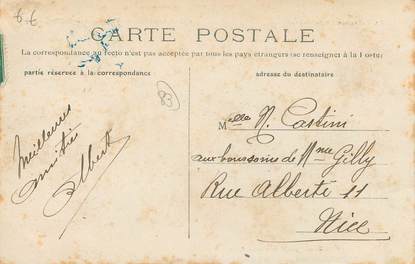 6€
CARTE POSTALE
La correspondance au recto n'est pas acceptée par tous les pays étrangers (se renseigner à la Poste)
partie réservée à la correspondance
adresse du destinataire
83
Meilleures
amitiés
Albert
Melle N. Castini
aux bons soins de Mme Gilly
Rue Alberti 11
Nice